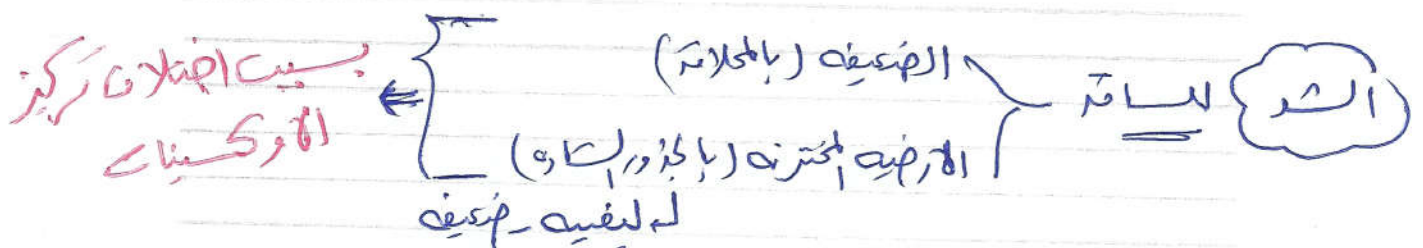 الشد للساق
الضعيفه (بالمحلاق)
الارضيه المختزنه (بالجذور الشاده)
ليفيه - ضعيفه
بسبب اختلاف تركيز
الاوكسينات